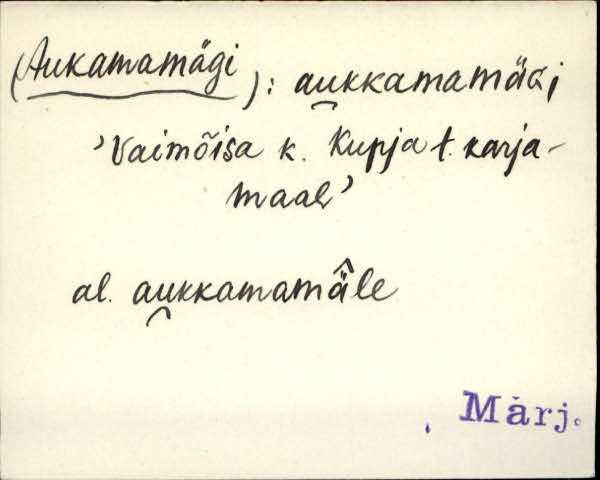 (Aukamamägi): au̯kkamamäɢi
'Vaimõisa k. Kupja t. karja-
maal'
al. au̯kkamamä̂le
Märj.